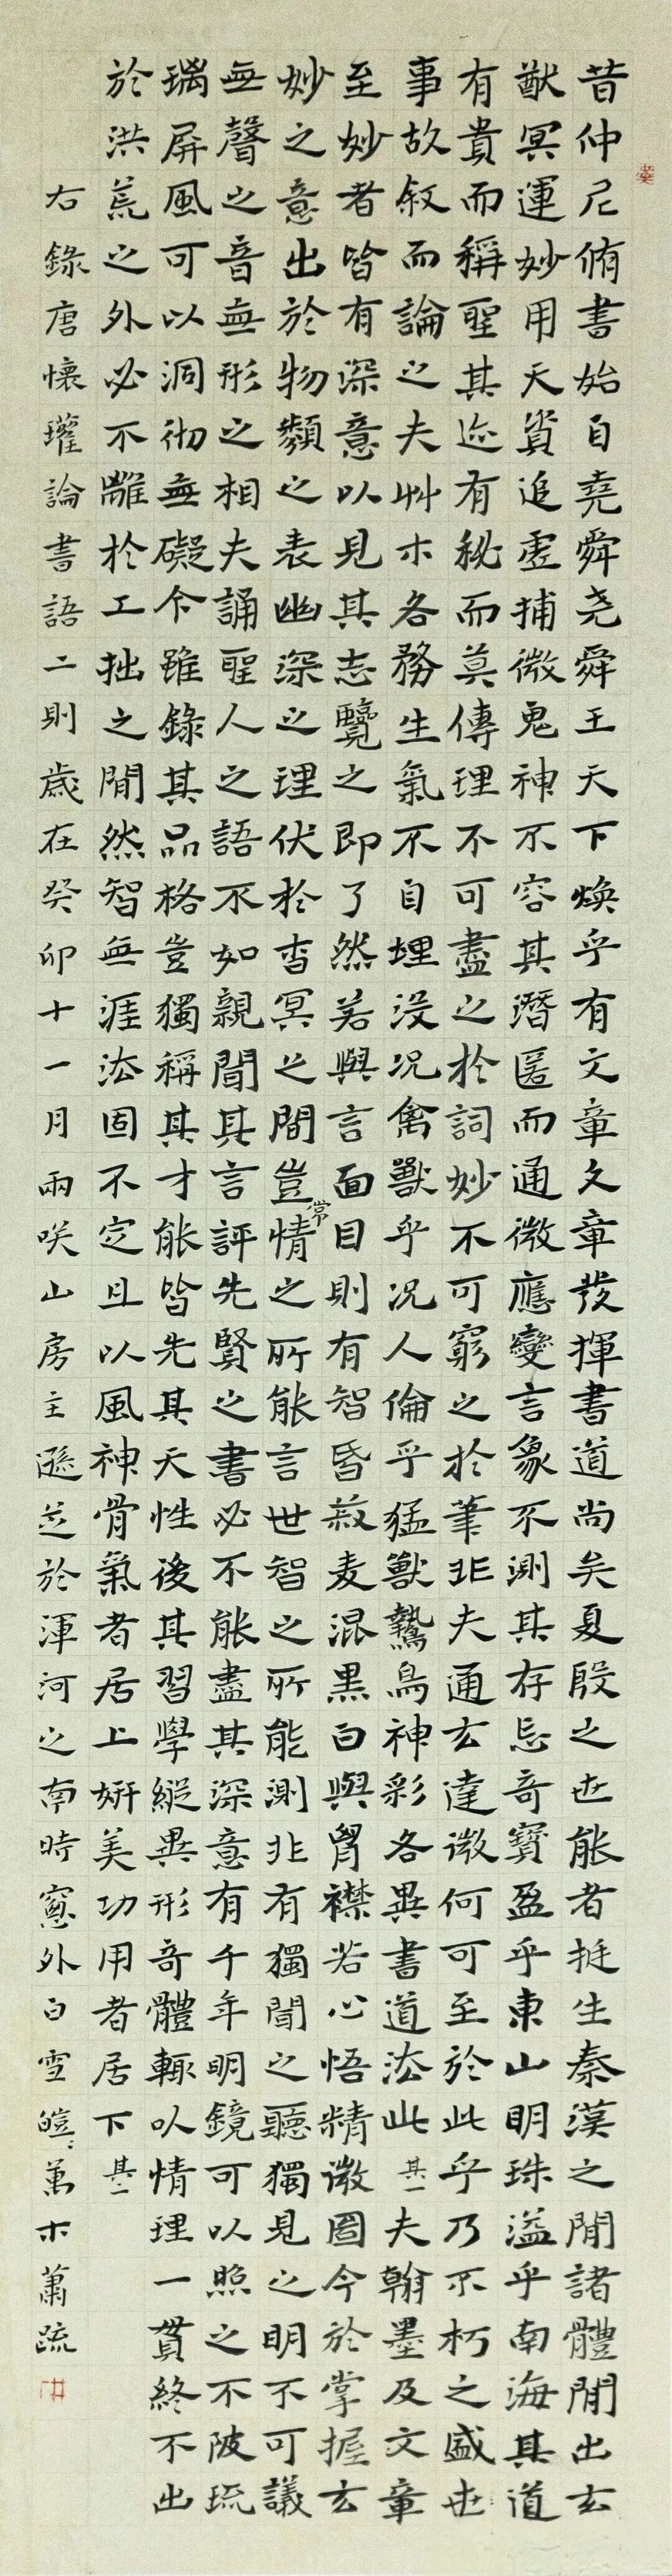 昔仲尼脩書始自堯舜尧舜王天下煥乎有文章文章發揮書道尚矣夏殷之世能者挺生秦漢之間諸體間出玄
猷冥運妙用天資追虛捕微鬼神不容其潛匿而通微應變言象不測其存忘奇寶盈乎東山明珠溢乎南海其道
有貴而稱聖其迹有秘而莫傳理不可盡之於詞妙不可窮之於筆非夫通玄達微何可至於此乎乃不朽之盛世
事故敘而論之夫艸木各務生氣不自埋没况禽獸乎况人倫乎猛獸鷙鳥神彩各異書道法此其一夫翰墨及文章
至妙者皆有深意以見其志覽之即了然若與言面目則有智昏菽麦混黑白與胷襟若心悟精微圖今於掌握玄
妙之意出於物類之表幽深之理伏於杳冥之間豈常情之所能言世智之所能測非有獨聞之聽獨見之明不可議
無聲之音無形之相夫誦聖人之語不如親聞其言評先賢之書必不能盡其深意有千年明鏡可以照之不陂琉
璃屏風可以洞彻無礙今雖錄其品格豈獨稱其才能皆先其天性後其習學縱異形奇體輒以情理一貫終不出
於洪荒之外必不離於工拙之間然智無涯法固不定且以風神骨氣者居上妍美功用者居下其二
右錄唐懷瓘論書語二則歲在癸卯十一月兩咲山房主遜於渾河之南時窻外白雪皚皚萬木蕭疏